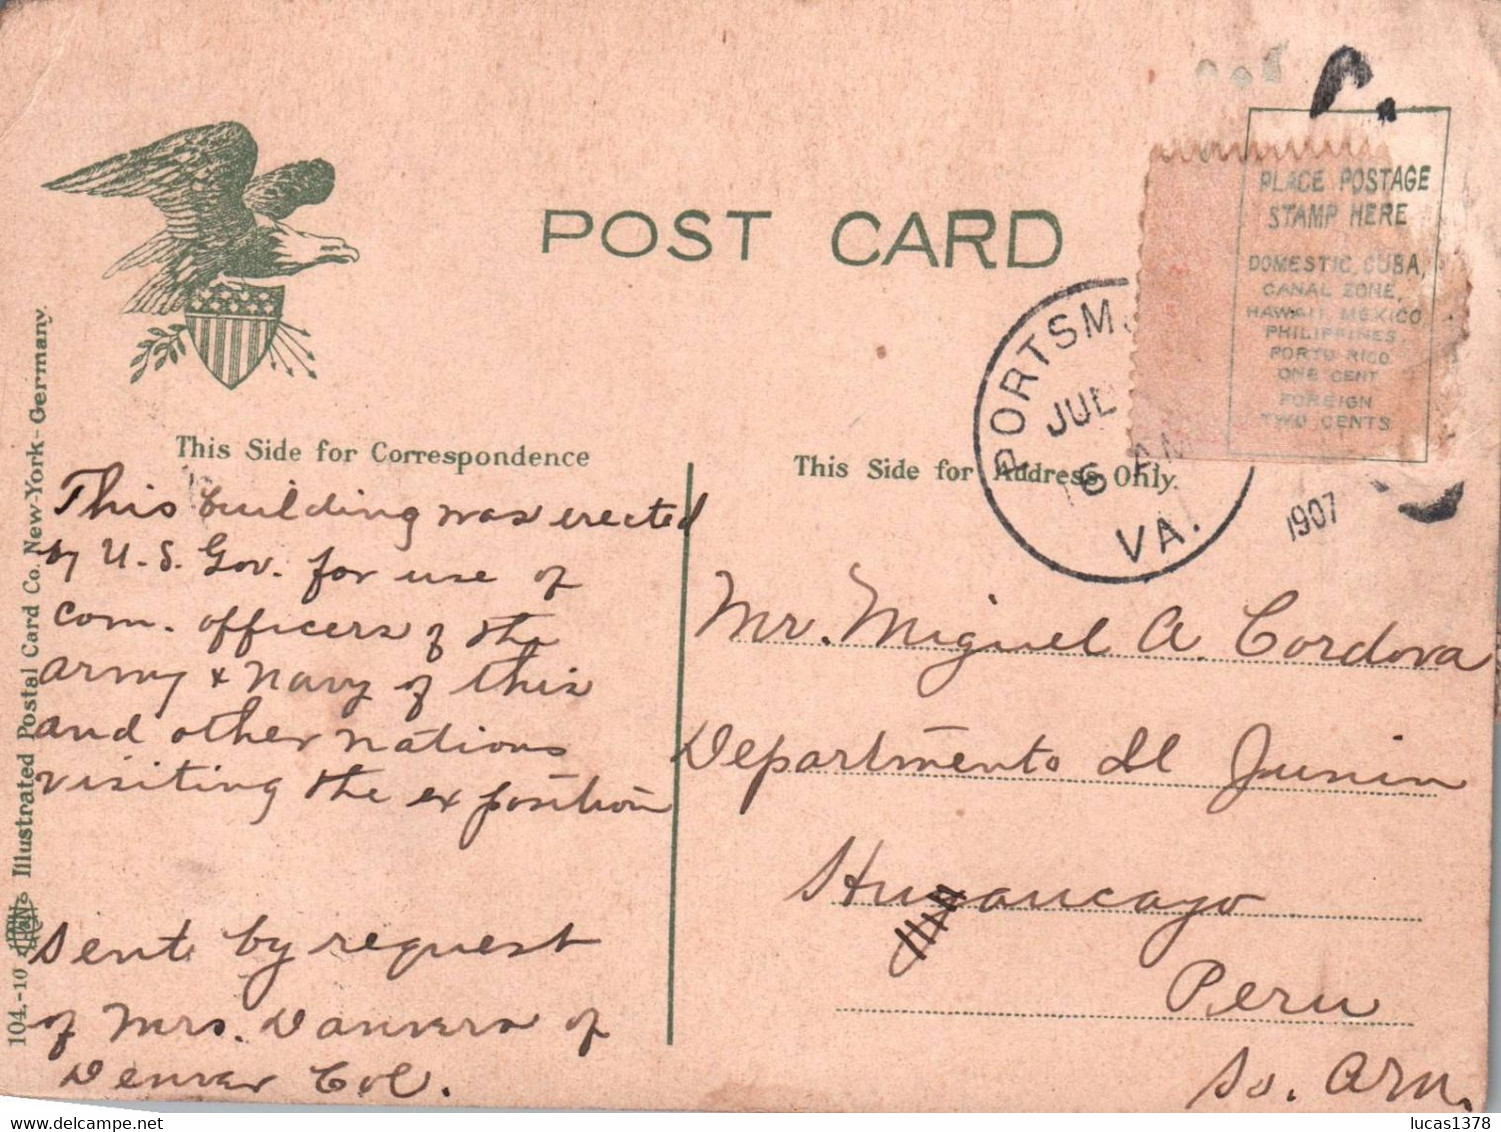 POST CARD
PLACE POSTAGE
STAMP HERE
DOMESTIC, CUBA,
CANAL ZONE,
HAWAII, MEXICO
PHILIPPINES,
PORTO RICO
ONE CENT
FOREIGN
TWO CENTS
PORTSM
JUL
6 AM
1907
VA.
This Side for Correspondence
This Side for Address Only.
This building was erected
by U.S. Gov. for use of
Com. officers of the
army & navy of this
and other nations
visiting the exposition
Sent by request
of Mrs. Danvers of
Denver Col.
Mr. Miguel A. Cordova
Departmento del Junin
Huancayo
Peru
So. Am.
104.-10 Illustrated Postal Card Co. New-York-Germany.
lucas1378